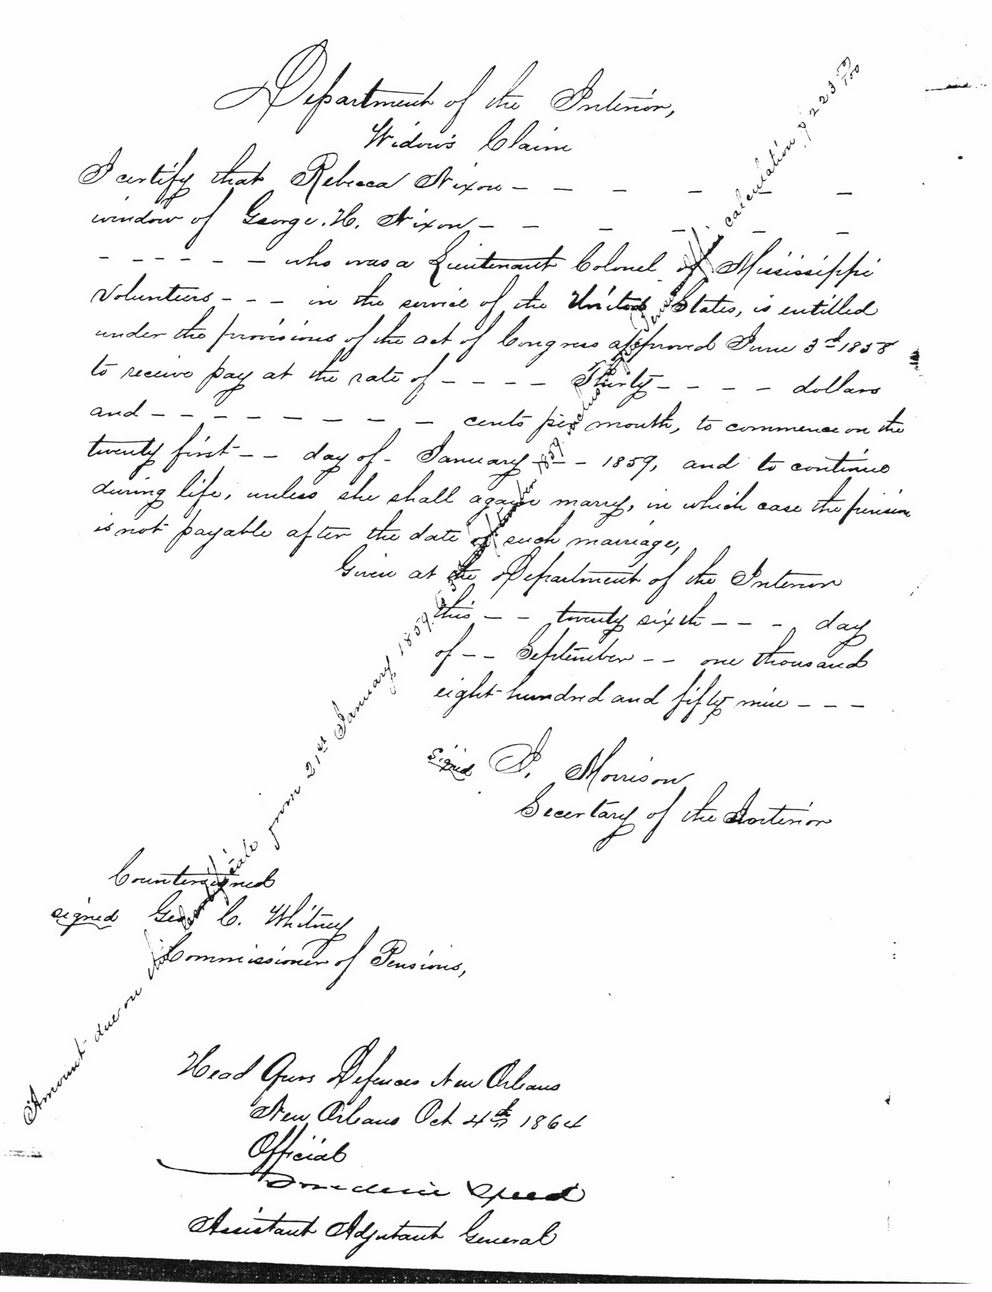 Department of the Interior,
Widow's Claim
I certify that Rebecca Nixon - - - - - -
window of George. H. Nixon - - - - - -
- - - - - - who was a Lieutenant Colonel of Mississippi
Volunteers - - - in the service of the United States, is entilled
under the provisions of the act of Congress approved June 3d 1858
to receive pay at the rate of - - - - Thirty - - - - dollars
and - - - - - - - - cents per month, to commence on the
twenty first - - day of - January - - - 1859, and to continue
during life, unless she shall again marry, in which case the pension
is not payable after the date of such marriage,
Given at the Department of the Interior
this - - twenty sixth - - - day
of - - September - - one thousand
eight hundred and fifty nine - - -
signed
Morrison
Secertary of the Interior
Countersigned
signed Geo C. Whitney
Commissioner of Pensions,
Amount due on this Certificate from 21st January 1859. to September 1859. Pension Office calculation, $223
Head Qurs Defences New Orleans
New Orleans Oct 4th 1864
Official
Frederic Speed
Assistant Adjutant General